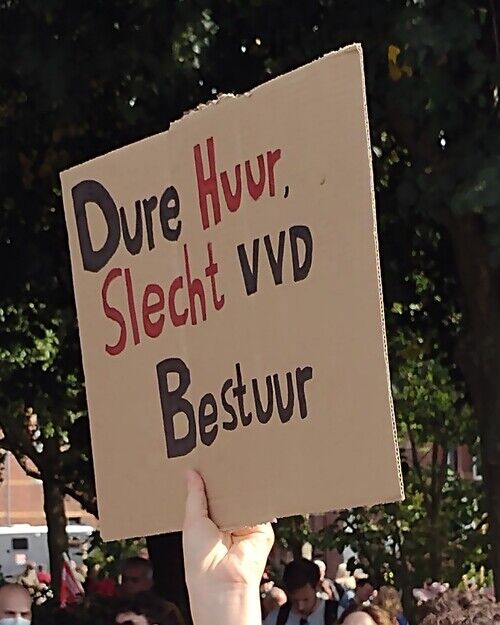 Dure Huur,
Slecht VVD
Bestuur